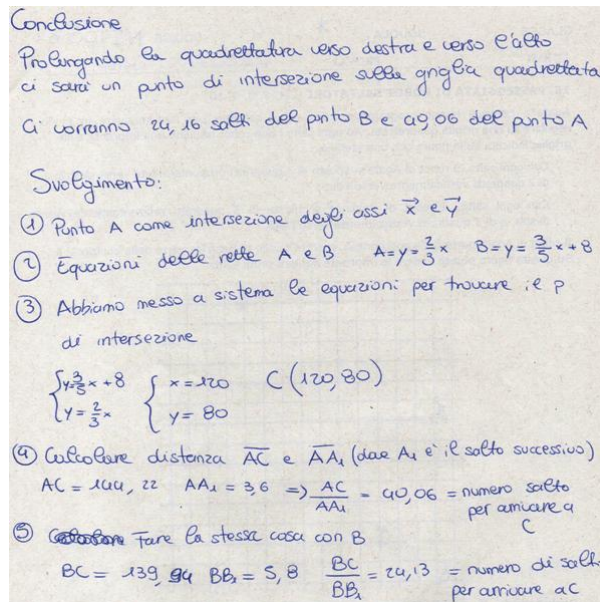 Conclusione
Prolungando la quadrettatura verso destra e verso l'alto
ci sarà un punto di intersezione sulla griglia quadrettata
Ci vorranno 24,16 salti del punto B e 40,06 del punto A
Svolgimento:
① Punto A come intersezione degli assi x⃗ e y⃗
② Equazioni delle rette A e B A=y=2/3x B=y=3/5x+8
③ Abbiamo messo a sistema le equazioni per trovare il p
di intersezione
{y=3/5x+8 {x=120 C(120,80)
{y=2/3x {y=80
④ Calcolare distanza AC e AA₁ (dove A₁ è il salto successivo)
AC=144,22 AA₁=3,6 => AC/AA₁ = 40,06 = numero salto
per arrivare a
C
⑤ Fare la stessa cosa con B
BC= 139,94 BB₁=5,8 BC/BB₁=24,13 = numero di salti
per arrivare a C